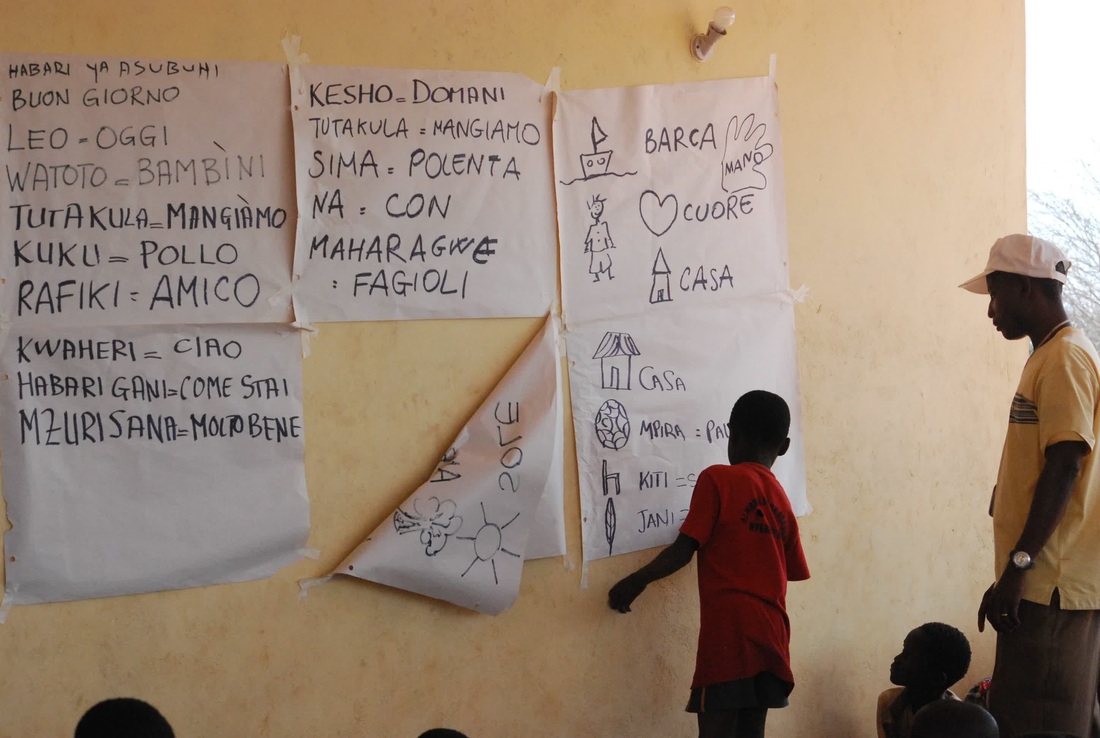 HABARI YA ASUBUHI
BUON GIORNO
LEO = OGGI
WATOTO = BAMBÌNI
TUTAKULA = MANGIÀMO
KUKU = POLLO
RAFIKI = AMICO
KWAHERI = CIAO
HABARI GANI = COME STAI
MZURI SANA = MOLTO BENE
KESHO = DOMANI
TUTAKULA = MANGIAMO
SIMA = POLENTA
NA = CON
MAHARAGWE
: FAGIOLI
SOLE
BARCA
MANO
CUORE
CASA
CASA
MPIRA =
KITI =
JANI =